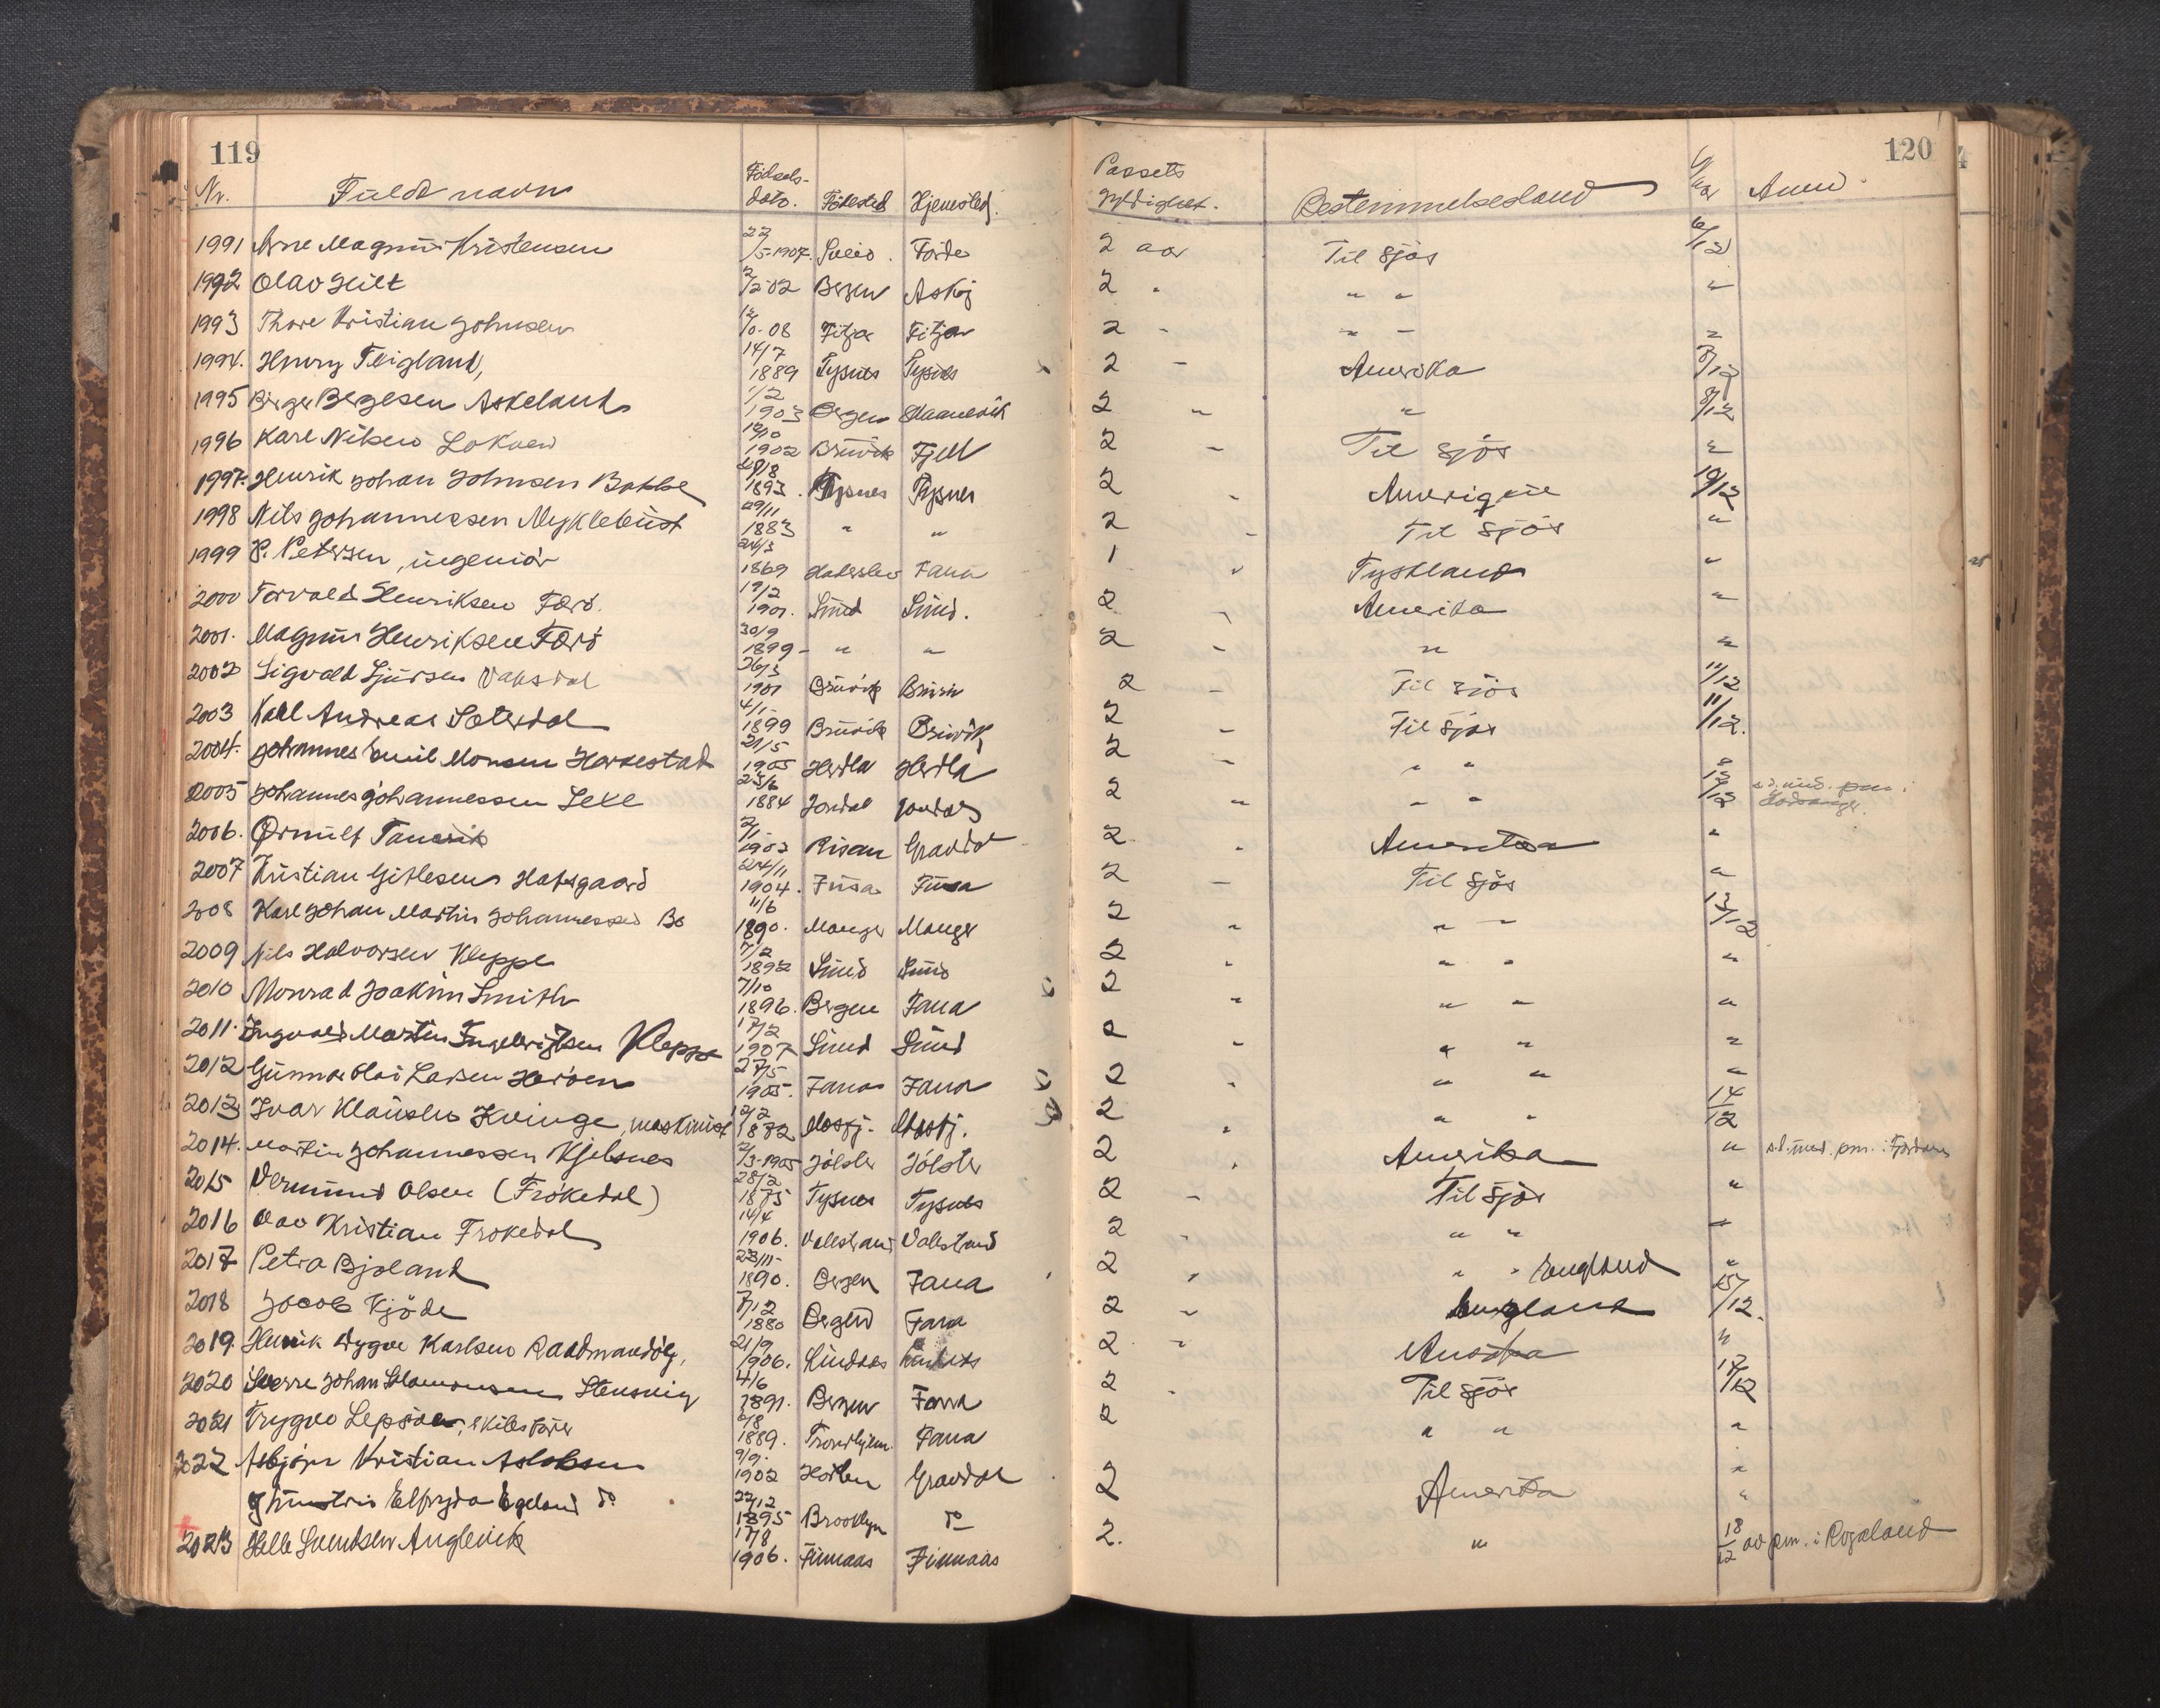 119 120
Nr. Fuldt navn Fødsels-dato. Fødested Hjemsted. Passets gyldighet. Bestemmelsesland Anm.
1991 Arne Magnus Kristensen 22/5-1907. Sveio. Førde 2 aar Til sjøs 6/12
1992 Olav Hilt 2/2-02 Bergen Askøj 2 " " " "
1993 Thore Kristian Johnsen Fitjar Fitjar 2 " " " "
1994. Henry Teigland, 14/7 1889 Tysnes Tysnes 2 " Amerika 8/12
1995 Birger Bergesen Askeland 1/2 1903 Bergen Skaanevik 2 " " 8/12
1996 Karl Nilsen Lokøen 1902 Bruvik Fjell 2 " Til sjøs "
1997. Henrik Johan Johnsen Bakke 1893. Tysnes Tysnes 2 " 10/12
1998 Nils Johannessen Myklebust 29/11 1883 " " 2 " Til sjøs "
1999 P. Petersen, ingeniør 24/3 1869 Haderslev Fana 1 " Tyskland "
2000 Torvald Henriksen Tærø. 19/2 1901. Sund Sund. 2 " Amerika "
2001. Magnus Henriksen Tærø 30/9 1899- " " 2 " " "
2002 Sigvald Sjursen Vaksdal 26/3 1901 Bruvik Bruvik 2 " Til sjøs 11/12
2003 Karl Andreas Sæterdal 4/1- 1899 Bruvik Bruvik 2 " Til sjøs 11/12.
2004. Johannes Emil Monsen Herdla Herdla 1905 21/5 2 " " "
2005 Johannes Johannessen 23/6 1884 2 " " " 13/12
2006. Ørnulf 2/1- 1903 Risør Gravdal 2 " Amerika "
2007 Kristian Gitlesen Hafsgaard 24/11 1904. Fusa Fusa 2 " Til sjøs "
2008 Karl Johan Martin Johannessen Bø 11/6 1890. Manger Manger 2 " " " 13/12
2009 Nils Halvorsen Kleppe 7/2 1892 Sund Sund 2 " " " "
2010 Monrad Joakim Smith 7/10 1896. Bergen Fana 2 " " " "
2011. Ingvald Martin Ingebrigtsen Kleppe 17/2 1907 Sund Sund 2 " " " "
2012 Gunnar Olai Larsen 27/5 1905. Fana Fana 2 " " " "
2013 Ivar Klausen Kvinge, maskinist 12/2 1872 Mosfj. Mosfj. 2 " " " 14/12
2014. Martin Johannessen Kjelsnes 2/3-1905 Jølster Jølster 2 " Amerika " s.d. med. pm. i Fjordane
2015 Vermund Olsen (Frøkedal) 28/2 1875 Tysnes Tysnes 2 " Til sjøs "
2016 Olav Kristian Frøkedal 14/4 1906. Valestrand Valestrand 2 " " " "
2017 Petra Bjøland 23/11- 1890. Bergen Fana 2 " " " England "
2018 Jacob Kjøde 7/12 1880 Bergen Fana 2 " England 15/12.
2019. Henrik Trygve Karlsen 21/9 1906. Lindaas Lindaas 2 " Amerika "
2020 Sverre Johan Salomonsen 4/6 1891. Bergen Fana 2 " Til sjøs 17/12
2021 Trygve Lepsøe, skibsfører 2/8 1889. Trondhjem. Fana 2 " " "
2022 Asbjørn Kristian Aslaksen 9/9. 1902 Gravdal 2 Amerika "
g hustru Elfryda Egeland do 22/12 1895 Brooklyn do "
2023 Helle Svendsen 17/8 1906. Finnaas Finnaas 2. " 18/12 av pm. i Rogaland